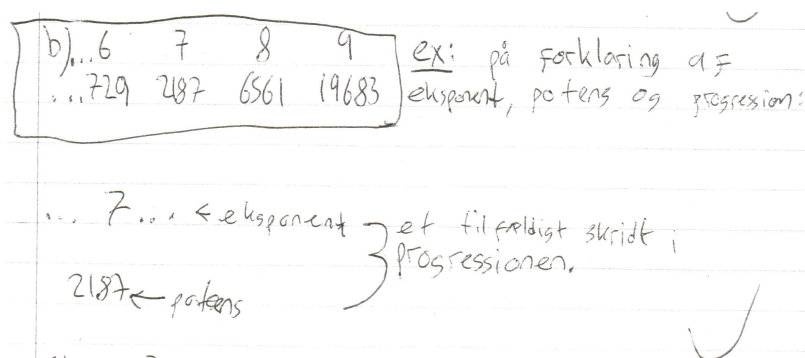 b)...6 7 8 9
...729 2187 6561 19683
ex: på forklaring af
eksponent, potens og progression:
... 7... ← eksponent
et tilfældigt skridt i
progressionen.
2187 ← potens